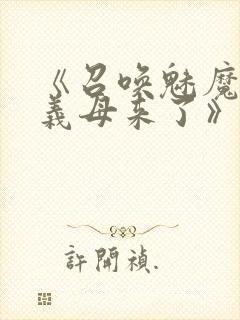 《召喚魅魔
義母来了》
許開禎.